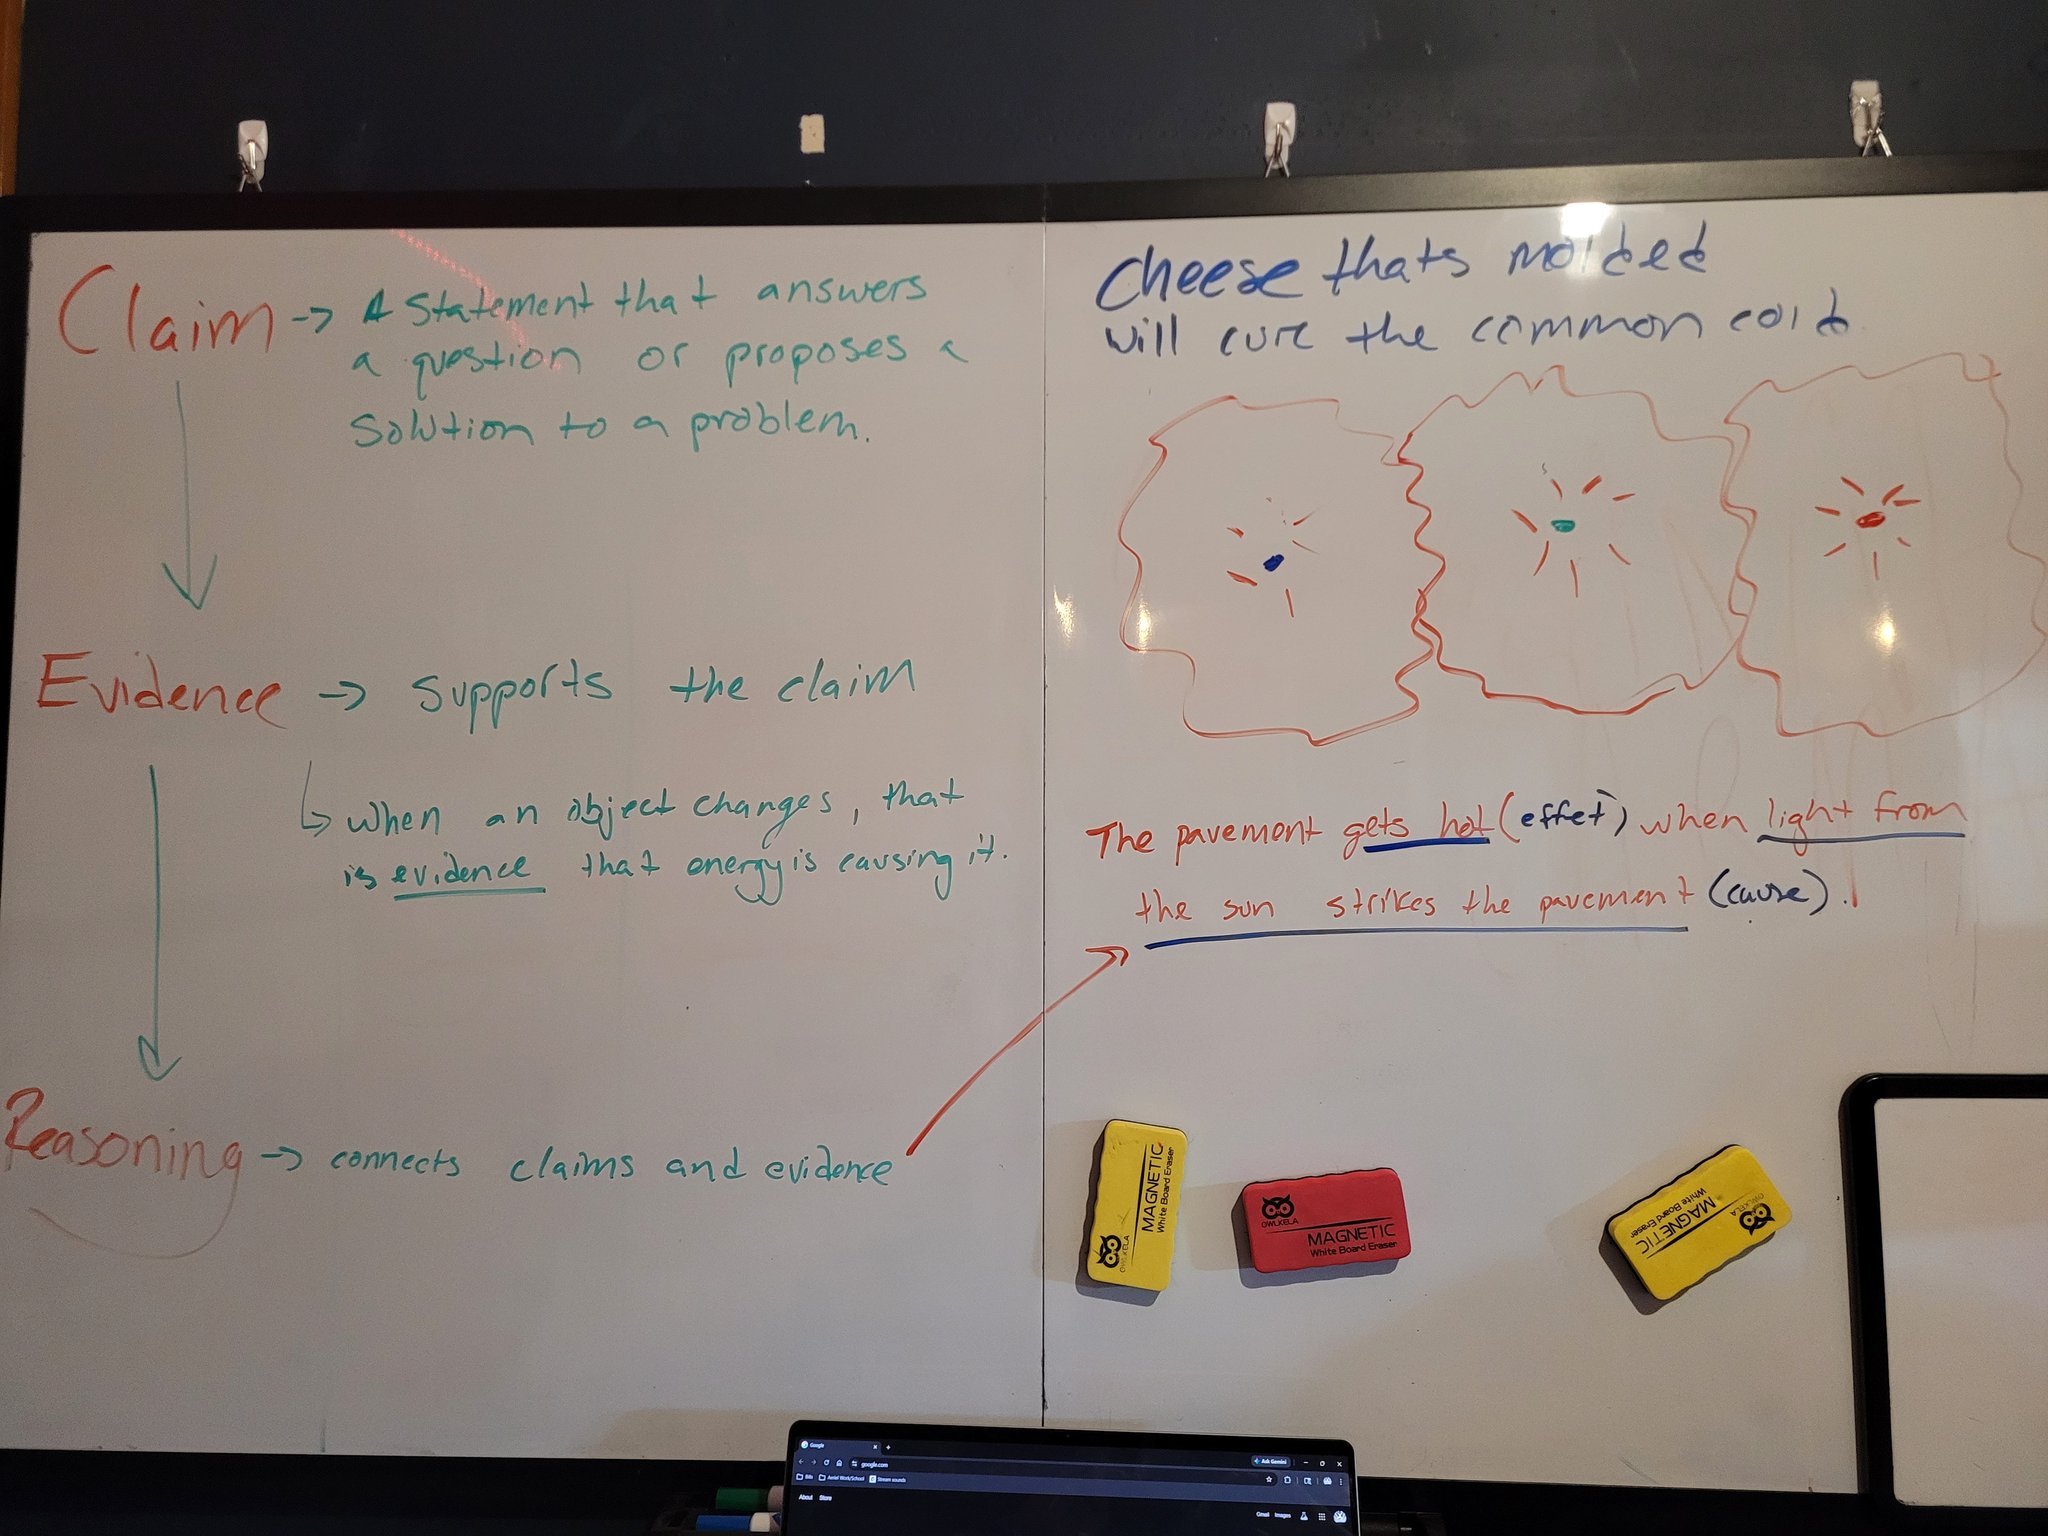 Claim → A statement that answers
a question or proposes a
solution to a problem.
Evidence → supports the claim
↳ when an object changes, that
is evidence that energy is causing it.
Reasoning → connects claims and evidence
Cheese thats molded
will cure the common cold
The pavement gets hot (effet) when light from
the sun strikes the pavement (cause).
OWLKELA
MAGNETIC
White Board Eraser
OWLKELA
MAGNETIC
White Board Eraser
OWLKELA
MAGNETIC
White Board Eraser
Google
google.com
Ask Gemini
Bills
Aeriel Work/School
Stream sounds
About Store
Gmail Images